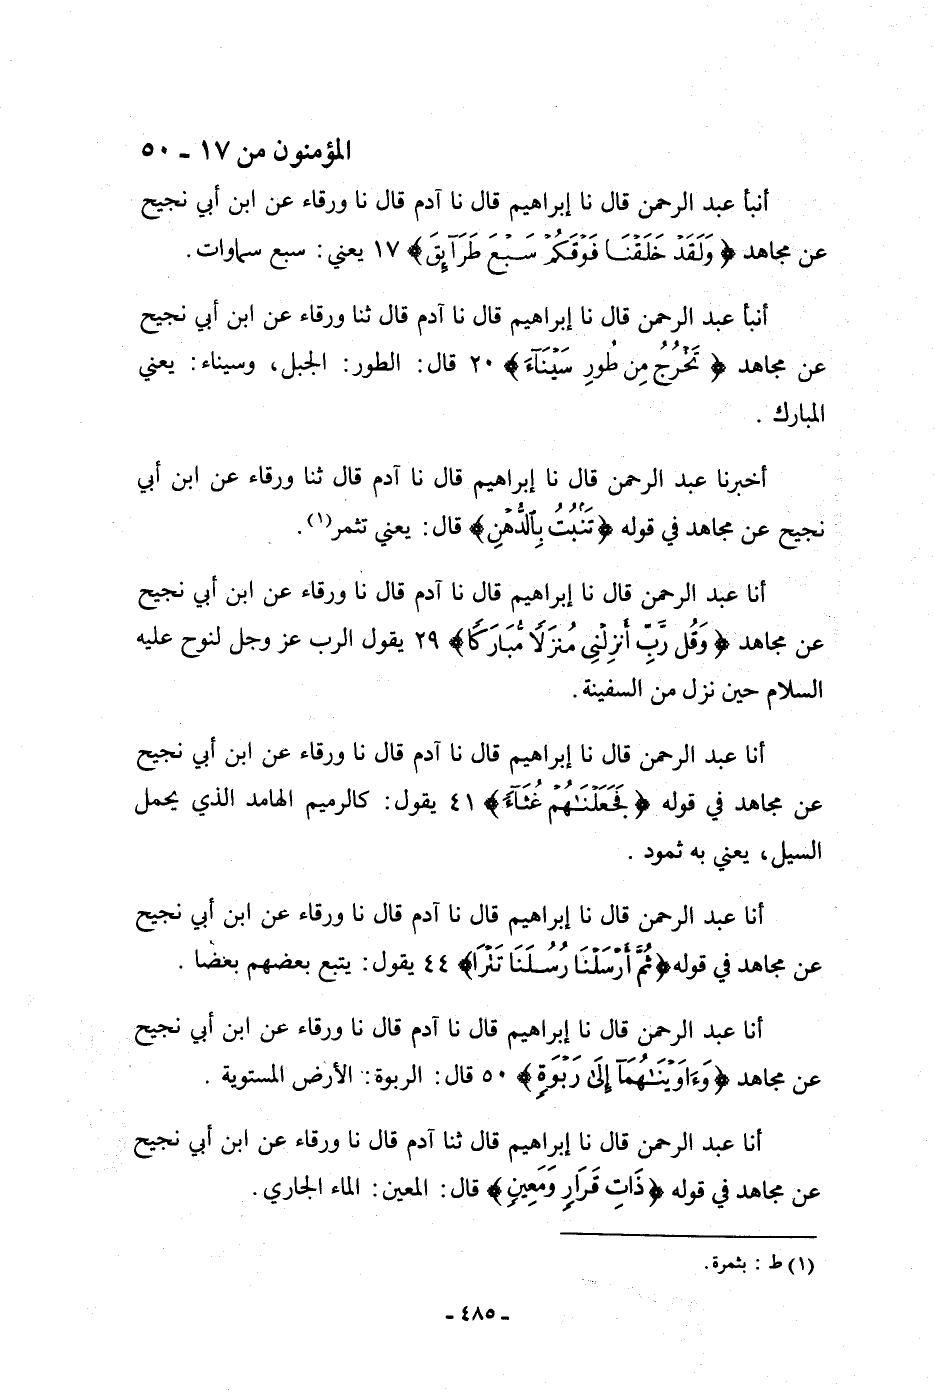 المؤمنون من ١٧ ـ ٥٠
أنبأ عبد الرحمن قال نا إبراهيم قال نا آدم قال نا ورقاء عن ابن أبي نجيح
عن مجاهد ﴿ وَلَقَدْ خَلَقْنَا فَوْقَكُمْ سَبْعَ طَرَآئِقَ ﴾ ١٧ يعني : سبع سماوات .
أنبأ عبد الرحمن قال نا إبراهيم قال نا آدم قال ثنا ورقاء عن ابن أبي نجيح
عن مجاهد ﴿ تَخْرُجُ مِن طُورِ سَيْنَآءَ ﴾ ٢٠ قال : الطور : الجبل ، وسيناء : يعني
المبارك .
أخبرنا عبد الرحمن قال نا إبراهيم قال نا آدم قال ثنا ورقاء عن ابن أبي
نجيح عن مجاهد في قوله ﴿ تَنْبُتُ بِٱلدُّهْنِ ﴾ قال : يعني تثمر(١) .
أنا عبد الرحمن قال نا إبراهيم قال نا آدم قال نا ورقاء عن ابن أبي نجيح
عن مجاهد ﴿ وَقُل رَّبِّ أَنزِلْنِي مُنزَلًا مُّبَارَكًا ﴾ ٢٩ يقول الرب عز وجل لنوح عليه
السلام حين نزل من السفينة .
أنا عبد الرحمن قال نا إبراهيم قال نا آدم قال نا ورقاء عن ابن أبي نجيح
عن مجاهد في قوله ﴿ فَجَعَلْنَٰهُمْ غُثَآءً ﴾ ٤١ يقول : كالرميم الهامد الذي يحمل
السيل ، يعني به ثمود .
أنا عبد الرحمن قال نا إبراهيم قال نا آدم قال نا ورقاء عن ابن أبي نجيح
عن مجاهد في قوله ﴿ ثُمَّ أَرْسَلْنَا رُسُلَنَا تَتْرَا ﴾ ٤٤ يقول : يتبع بعضهم بعضا .
أنا عبد الرحمن قال نا إبراهيم قال نا آدم قال نا ورقاء عن ابن أبي نجيح
عن مجاهد ﴿ وَءَاوَيْنَٰهُمَآ إِلَىٰ رَبْوَةٍ ﴾ ٥٠ قال : الربوة : الأرض المستوية .
أنا عبد الرحمن قال نا إبراهيم قال ثنا آدم قال نا ورقاء عن ابن أبي نجيح
عن مجاهد في قوله ﴿ ذَاتِ قَرَارٍ وَمَعِينٍ ﴾ قال : المعين : الماء الجاري .
(١) ط : بثمرة .
ـ ٤٨٥ ـ